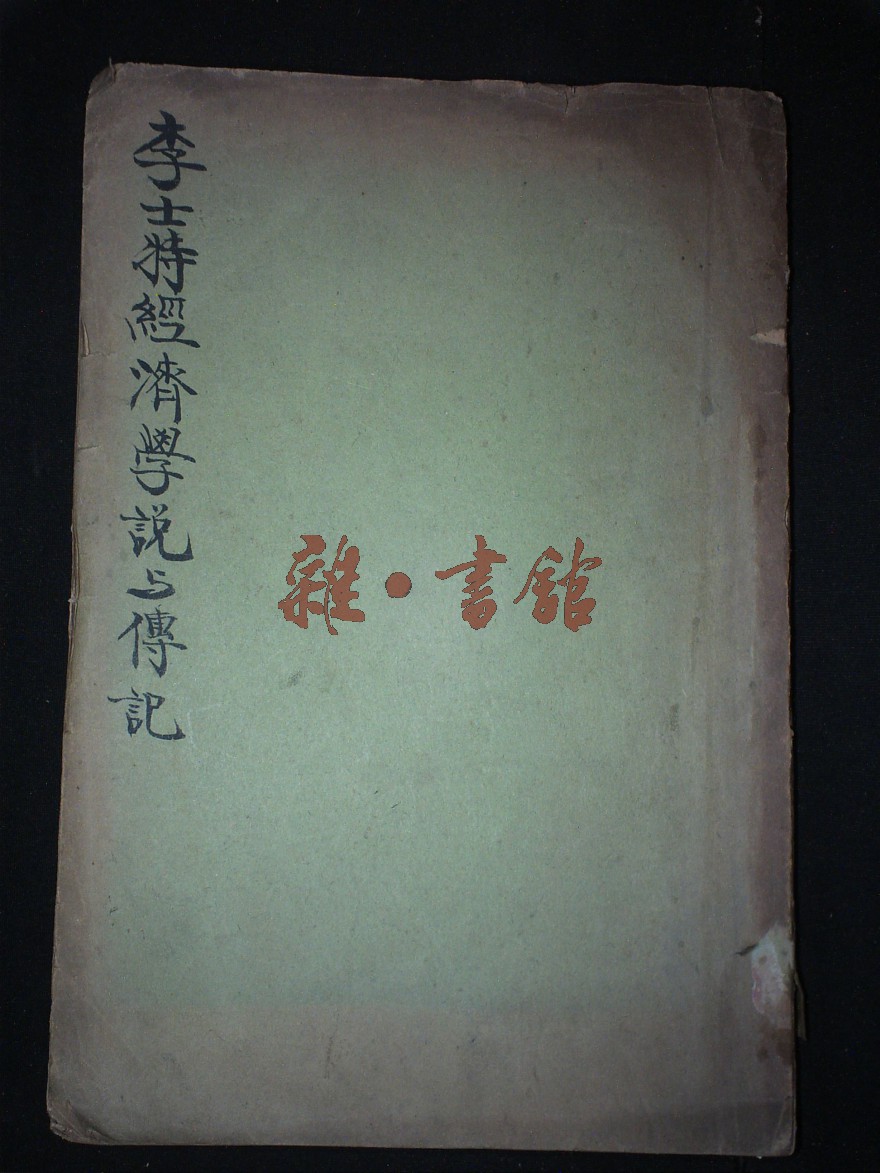 李士特經濟學説与傳記
雜·書館